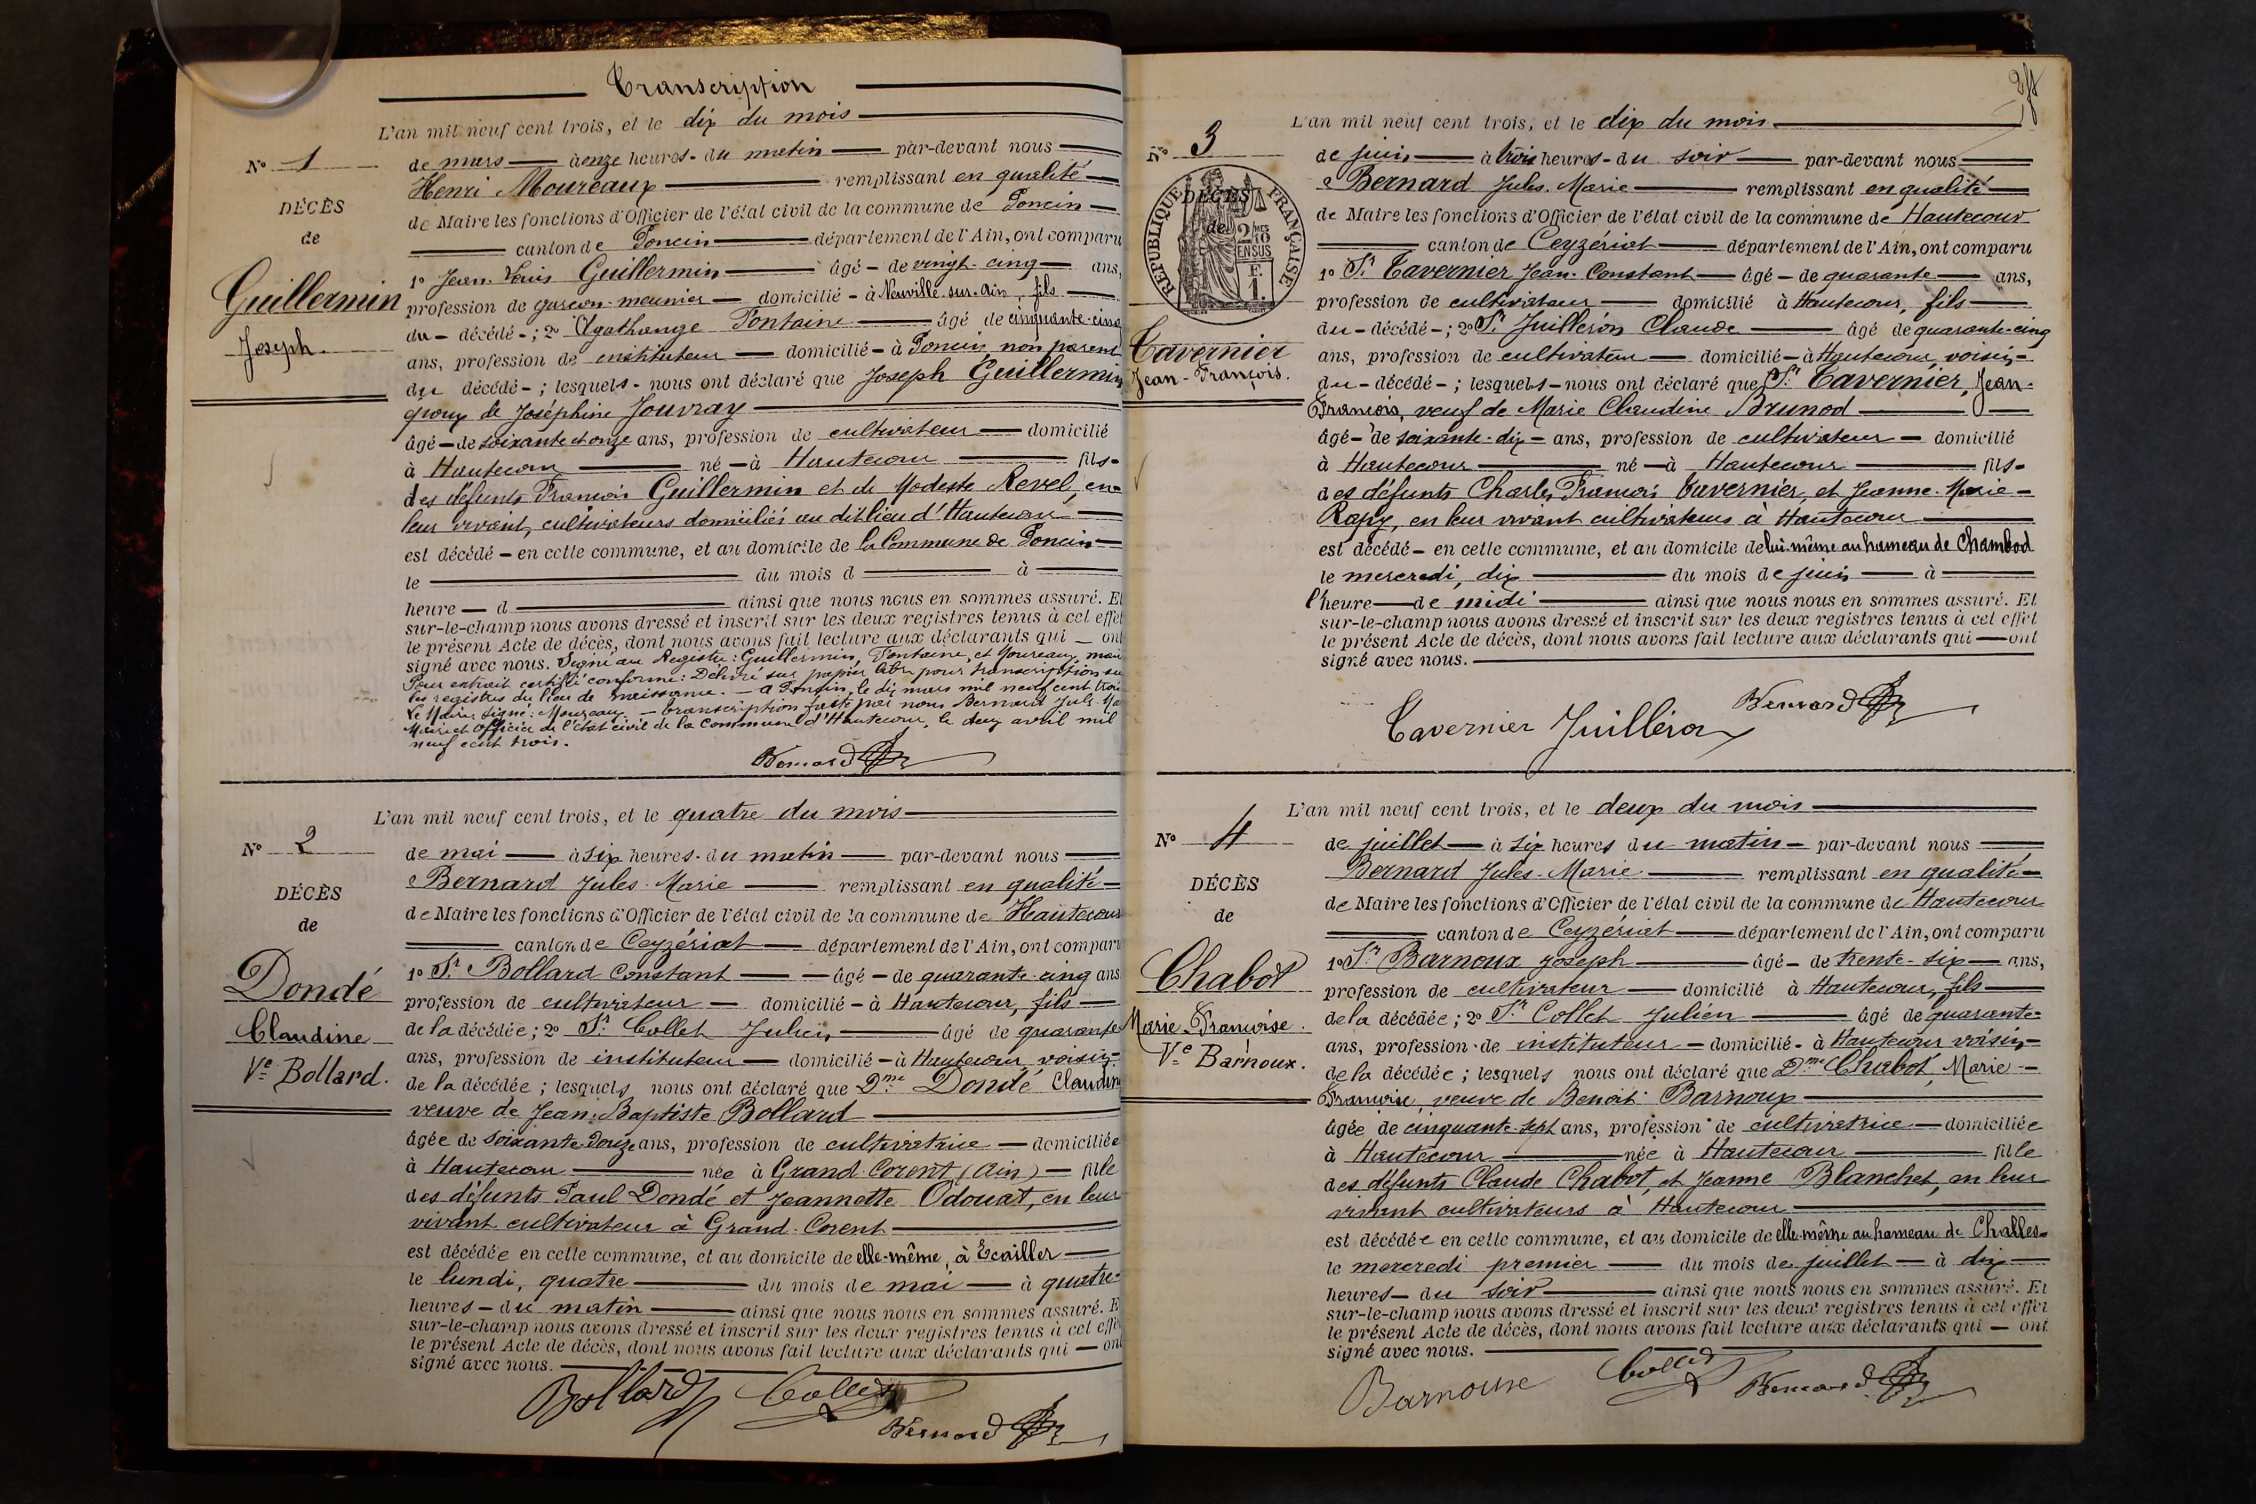 Transcription
L'an mil neuf cent trois, et le dix du mois
N° 1
de mars à onze heures du matin par-devant nous
Henri Moureaux remplissant en qualité
DÉCÈS
de Maire les fonctions d'Officier de l'état civil de la commune de Poncin
de
canton de Poncin département de l'Ain, ont comparu
1° Jean Louis Guillermin âgé de vingt-cinq ans,
Guillermin
profession de garçon-meunier domicilié à Neuville-sur-Ain, fils
du décédé ; 2° Agathange Fontaine âgé de cinquante-cinq
Joseph.
ans, profession de instituteur domicilié à Poncin, non parent
du décédé ; lesquels nous ont déclaré que Joseph Guillermin
époux de Joséphine Jouvray
âgé de soixante et onze ans, profession de cultivateur domicilié
à Hautecour né à Hautecour fils
des défunts François Guillermin et de Modeste Revel, en
leur vivant, cultivateurs domiciliés au dit lieu d'Hautecour
est décédé en cette commune, et au domicile de la Commune de Poncin
le du mois d à
heure d ainsi que nous nous en sommes assuré. Et
sur-le-champ nous avons dressé et inscrit sur les deux registres tenus à cet effet
le présent Acte de décès, dont nous avons fait lecture aux déclarants qui ont
signé avec nous. Signé au Registre : Guillermin, Fontaine, et Moureaux, maire
Pour extrait certifié conforme : Délivré sur papier libre pour transcription sur
les registres du lieu de naissance. — A Poncin, le dix mars mil neuf cent trois
Le Maire signé : Moureaux — transcription faite par nous Bernard Jules Marie
Maire et Officier de l'état civil de la Commune d'Hautecour, le deux avril mil
neuf cent trois.
Bernard
L'an mil neuf cent trois, et le quatre du mois
N° 2
de mai à six heures du matin par-devant nous
Bernard Jules-Marie remplissant en qualité
DÉCÈS
de Maire les fonctions d'Officier de l'état civil de la commune de Hautecour
de
canton de Ceyzériat département de l'Ain, ont comparu
Dondé
1° Sr Bollard Constant âgé de quarante-cinq ans
profession de cultivateur domicilié à Hautecour, fils
Claudine
de la décédée ; 2° Sr Collet Julien âgé de quarante
ans, profession de instituteur domicilié à Hautecour, voisin
Ve Bollard.
de la décédée ; lesquels nous ont déclaré que Dme Dondé Claudine
veuve de Jean-Baptiste Bollard
âgée de soixante-douze ans, profession de cultivatrice domiciliée
à Hautecour née à Grand-Corent (Ain) fille
des défunts Paul Dondé et Jeannette Odouat, en leur
vivant cultivateur à Grand-Corent
est décédée en cette commune, et au domicile de elle-même, à Écailler
le lundi, quatre du mois de mai à quatre
heures du matin ainsi que nous nous en sommes assuré. Et
sur-le-champ nous avons dressé et inscrit sur les deux registres tenus à cet effet
le présent Acte de décès, dont nous avons fait lecture aux déclarants qui ont
signé avec nous.
Bollard Collet
Bernard
L'an mil neuf cent trois, et le dix du mois
N° 3
de juin à trois heures du soir par-devant nous
Bernard Jules-Marie remplissant en qualité
DÉCÈS
RÉPUBLIQUE FRANÇAISE
de Maire les fonctions d'Officier de l'état civil de la commune de Hautecour
de
2/10 EN SUS
canton de Ceyzériat département de l'Ain, ont comparu
1° Sr Tavernier Jean-Constant âgé de quarante ans,
profession de cultivateur domicilié à Hautecour, fils
du décédé ; 2° Sr Juilléron Claude âgé de quarante-cinq
Tavernier
ans, profession de cultivateur domicilié à Hautecour, voisin
Jean-François.
du décédé ; lesquels nous ont déclaré que Sr Tavernier, Jean-
François, veuf de Marie Claudine Brunod
âgé de soixante-dix ans, profession de cultivateur domicilié
à Hautecour né à Hautecour fils
des défunts Charles François Tavernier, et Jeanne-Marie
Rapy, en leur vivant cultivateurs à Hautecour
est décédé en cette commune, et au domicile de lui-même au hameau de Chambod
le mercredi, dix du mois de juin à
l'heure de midi ainsi que nous nous en sommes assuré. Et
sur-le-champ nous avons dressé et inscrit sur les deux registres tenus à cet effet
le présent Acte de décès, dont nous avons fait lecture aux déclarants qui ont
signé avec nous.
Tavernier Juilléron Bernard
L'an mil neuf cent trois, et le deux du mois
N° 4
de juillet à six heures du matin par-devant nous
Bernard Jules-Marie remplissant en qualité
DÉCÈS
de Maire les fonctions d'Officier de l'état civil de la commune de Hautecour
de
canton de Ceyzériat département de l'Ain, ont comparu
1° Sr Barnoux Joseph âgé de trente-six ans,
Chabot
profession de cultivateur domicilié à Hautecour, fils
Marie-Françoise.
de la décédée ; 2° Sr Collet Julien âgé de quarante
ans, profession de instituteur domicilié à Hautecour voisin
Ve Barnoux.
de la décédée ; lesquels nous ont déclaré que Dme Chabot, Marie
Françoise, veuve de Benoit Barnoux
âgée de cinquante-sept ans, profession de cultivatrice domiciliée
à Hautecour née à Hautecour fille
des défunts Claude Chabot, et Jeanne Blanchet, en leur
vivant cultivateurs à Hautecour
est décédée en cette commune, et au domicile de elle-même au hameau de Challes
le mercredi premier du mois de juillet à dix
heures du soir ainsi que nous nous en sommes assuré. Et
sur-le-champ nous avons dressé et inscrit sur les deux registres tenus à cet effet
le présent Acte de décès, dont nous avons fait lecture aux déclarants qui ont
signé avec nous.
Barnoux Collet Bernard